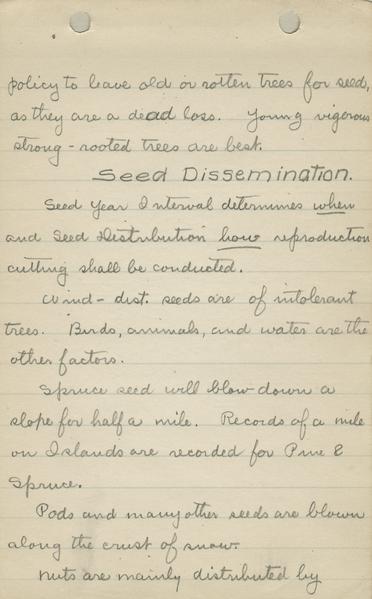 policy to leave old or rotten trees for seed,
as they are a dead loss. Young vigorous
strong-rooted trees are best.
Seed Dissemination.
Seed Year Interval determines when
and Seed Distribution how reproduction
cutting shall be conducted.
Wind-dist. seeds are of intolerant
trees. Birds, animals, and water are the
other factors.
Spruce seed will blow down a
slope for half a mile. Records of a mile
on Islands are recorded for Pine &
Spruce.
Pods and many other seeds are blown
along the crust of snow.
Nuts are mainly distributed by